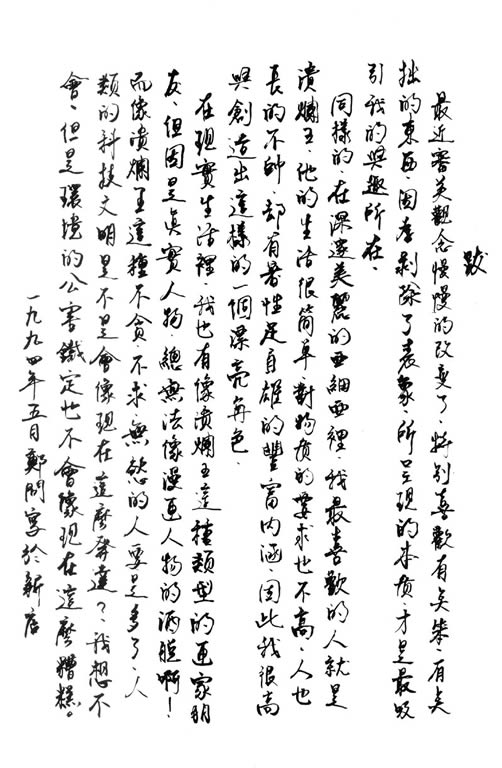 跋
最近審美觀念慢慢的改變了、特別喜歡有点笨、有点
拙的東西、因為剝除了表象、所呈現的本質、才是最吸
引我的興趣所在、
同樣的、在深邃美麗的亞細亞裡、我最喜歡的人就是
潰爛王、他的生活很簡單、對物質的要求也不高、人也
長的不帥、却有著性足自雄的豐富內涵、因此我很高
興創造出這樣的一個漂亮角色、
在現實生活裡、我也有像潰爛王這種類型的画家朋
友、但因是真實人物、總無法像漫画人物的洒脫啊！
而像潰爛王這種不貪、不求、無慾的人要是多了、人
類的科技文明是不是會像現在這麼發達？、我想不
會、但是環境的公害鐵定也不會像現在這麼糟糕。
一九九四年五月鄭問寫於新店